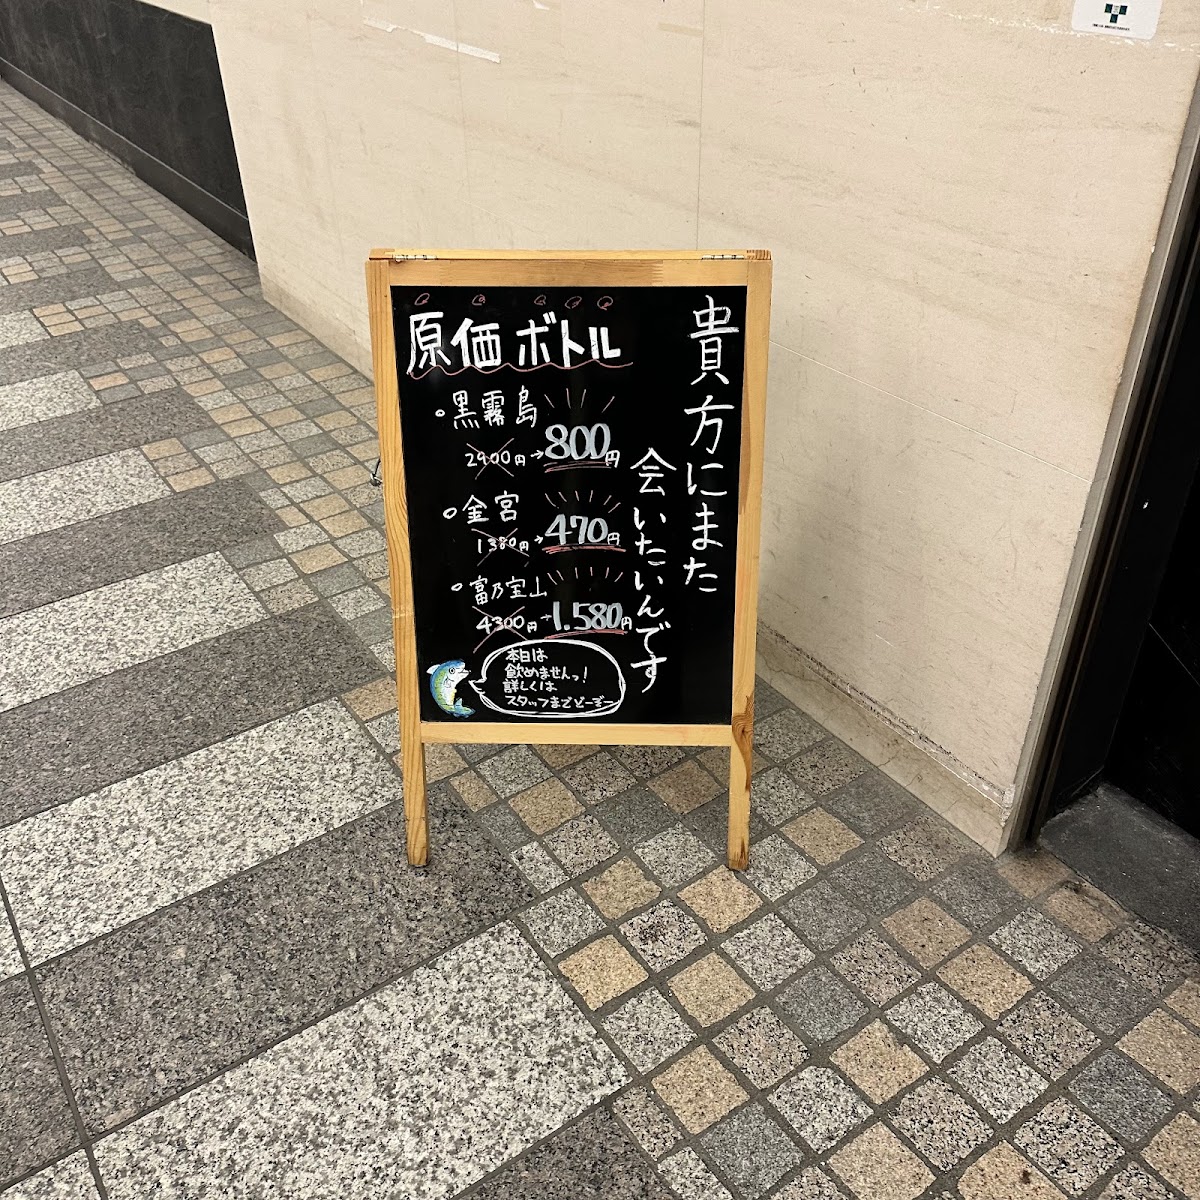 貴方にまた
会いたいんです
原価ボトル
黒霧島
2900円→800円
金宮
1380円→470円
富乃宝山
4300円→1.580円
本日は
飲めませんっ!
詳しくは
スタッフまでどーぞー